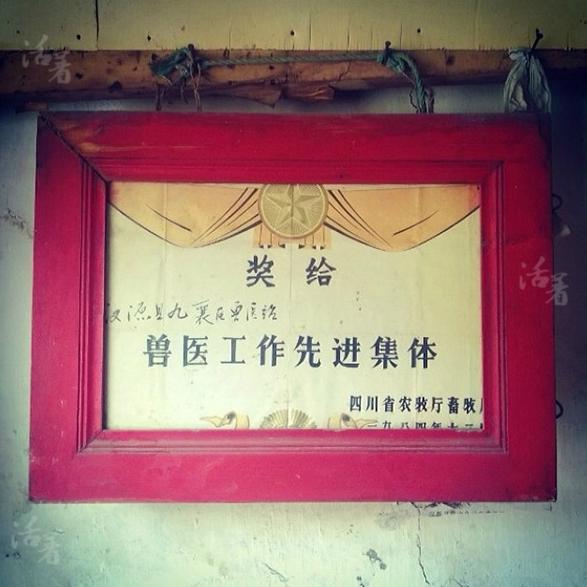 活著
奖给
汉源县九襄区兽医站
兽医工作先进集体
四川省农牧厅畜牧
一九八四年十二
活著
活著